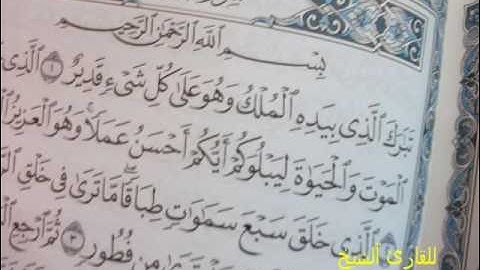 بِسْمِ ٱللَّهِ ٱلرَّحْمَٰنِ ٱلرَّحِيمِ
تَبَٰرَكَ ٱلَّذِى بِيَدِهِ ٱلْمُلْكُ وَهُوَ عَلَىٰ كُلِّ شَىْءٍ قَدِيرٌ ١ ٱلَّذِى
ٱلْمَوْتَ وَٱلْحَيَوٰةَ لِيَبْلُوَكُمْ أَيُّكُمْ أَحْسَنُ عَمَلًا وَهُوَ ٱلْعَزِيزُ
ٱلَّذِى خَلَقَ سَبْعَ سَمَٰوَٰتٍ طِبَاقًا مَّا تَرَىٰ فِى خَلْقِ
مِن فُطُورٍ ٣ ثُمَّ ٱرْجِعِ
للقارئ الشيخ